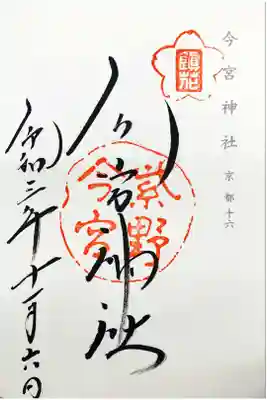 今宮神社 京都十六
鎮花
今宮神社
紫野
今宮
令和三年十一月六日